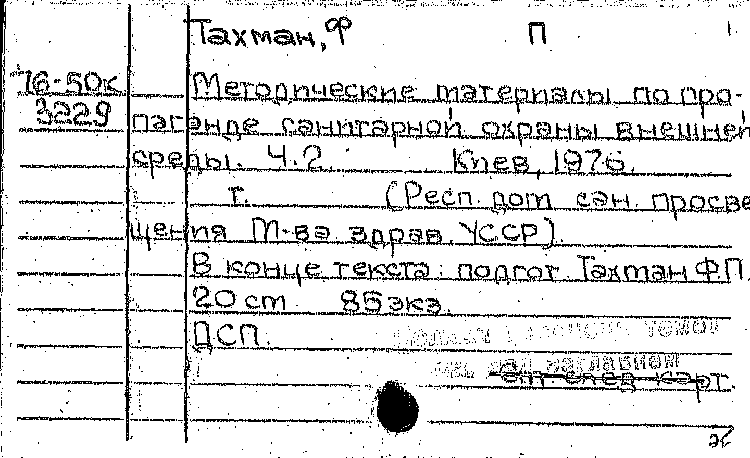 Тахман, Ф П
76-50к Методические материалы по про-
3229 паганде санитарной охраны внешней
среды. Ч.2. Киев, 1976.
т. (Респ. дом сан. просве
щения М-ва здрав. УССР).
В конце текста: подгот. Тахман Ф.П.
20 cm 85 экз.
ДСП.
томов
под заглавием
От след карт.